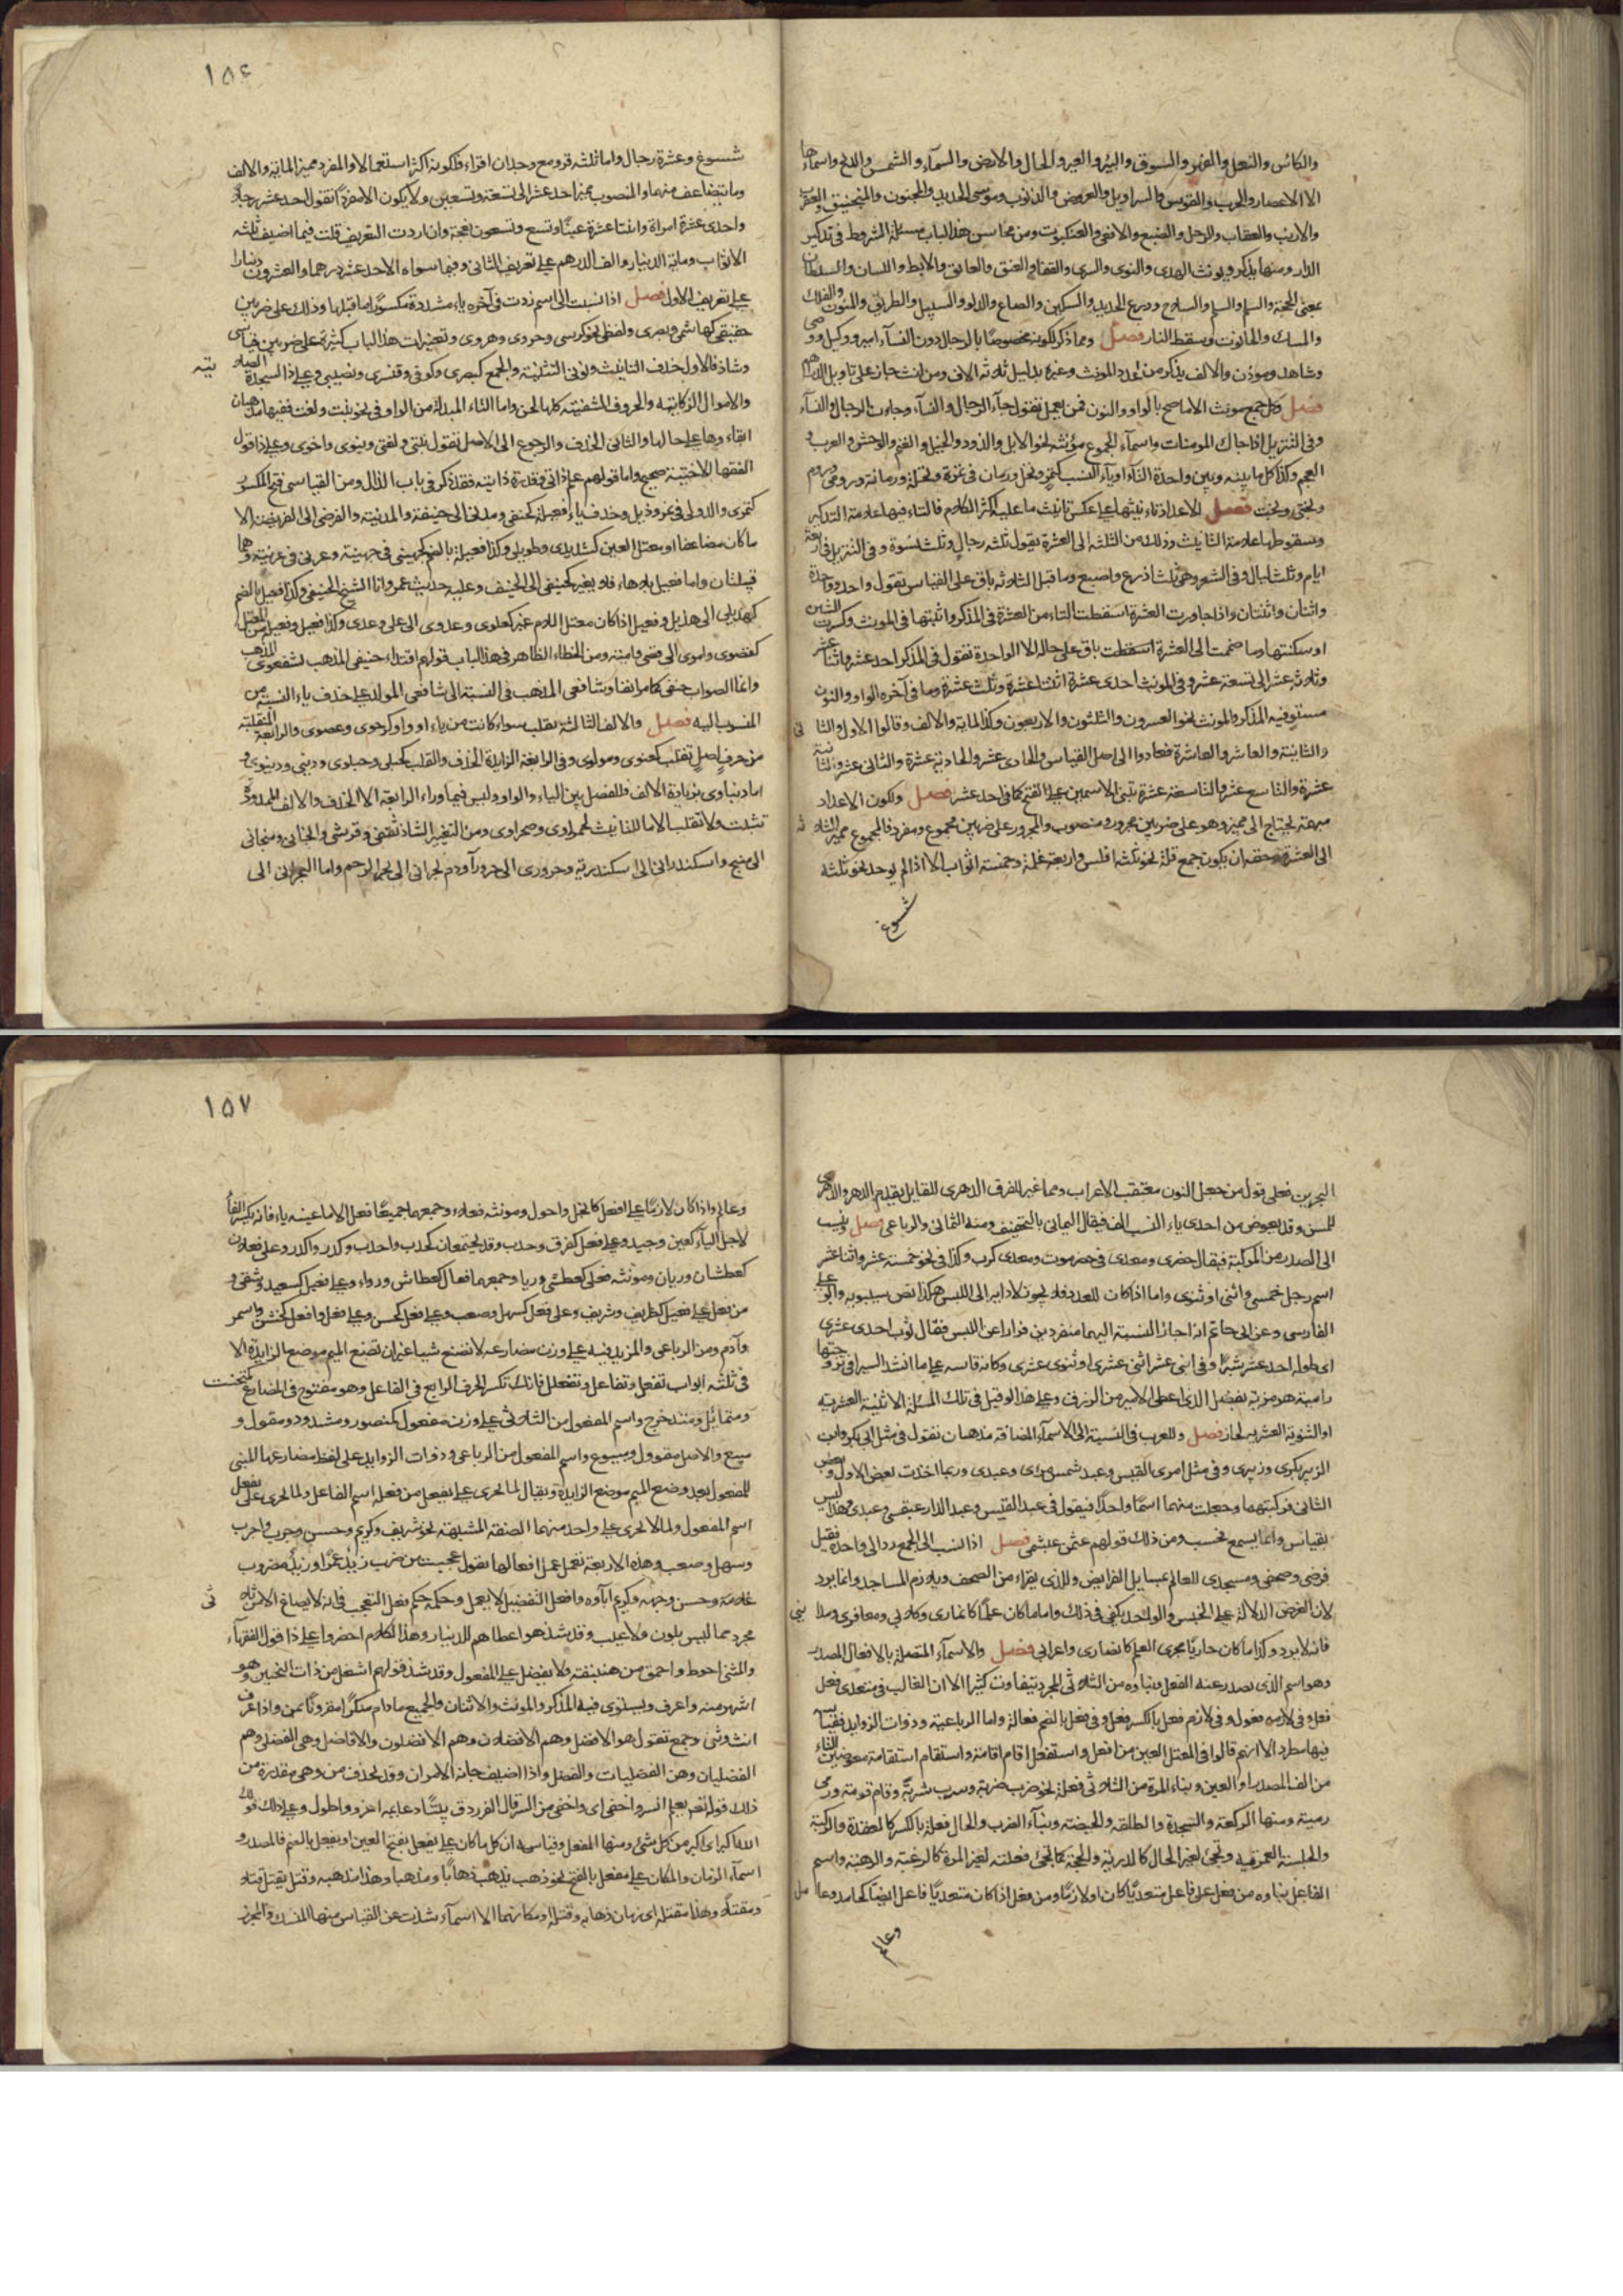 والكأس والنعل والفهر والسوق والبئر والعير والحال والارض والسماء والشمس والدلو واسماءها
الا الاعصار والحرب والقوس والسراويل والعروض والذنوب وموسى الحديد والمنجنون والمنجنيق والعقرب
والارنب والعقاب والرجل والضبع والافعى والعنكبوت ومن محاسن هذا الباب مسئلة الشروط في تذكير
الدار ومنها يذكر ويونث الهدى والنوى والسرى والقفا والعنق والعاتق والابط واللسان والسلطان
بمعنى الحجة والسلم والسلم والسلاح ودرع الحديد والسكين والصاع والدلو والسبيل والطريق والمنون والفلك
والمسك والحانوت وسقط النار فصل ومما ذكر لكونه مخصوصًا بالرجال دون النساء امير ووكيل ووصى
وشاهد وموذن والالف يذكر من عدد المونث وغيره بدليل ثلاثة الاف ومن انث جاز على تاويل الدراهم
فصل وكل جمع مونث الا ما صح بالواو والنون فمن يعمل تقول جاء الرجال والنساء وجاءت الرجال والنساء
وفي التنزيل اذا جاك المومنات واسماء الجموع مؤنثه نحو الابل والذود والخيل والغنم والوحش والعرب و
العجم وكذا كل ما بينه وبين واحده التاء او ياء النسب كتمر ونخل ورمان في تمرة ونخلة ورمانة ورومى وروم
وبختى وبخت فصل الاعداد تاء نيثها على عكس تانيث ما عليه اكثر الكلام فالتاء فيها علامة التذكير
وسقوطها علامة التانيث وذلك من الثلثه الى العشرة يقول ثلثه رجال وثلث نسوة وفي التنزيل في اربعة
ايام وثلث ليال وفي الشعر وهى ثلث اذرع واصبع وما قبل الثلاثه باق على القياس تقول واحد وواحدة
واثنان واثنتان واذا جاوزت العشرة اسقطت التاء من العشرة في المذكر واثبتها في المونث وكسرت الشين
او سكنتها وما ضممت الى العشرة اسقطت باق على حاله الا الواحدة تقول في المذكر احد عشر واثنا عشر
وثلاثه عشر الى تسعة عشر وفي المونث احدى عشرة اثنتا عشرة وثلث عشرة وما في آخره الواو والنون
مستو فيه المذكر والمونث نحو العشرون والثلثون والاربعون وكذا الماية والالف وقالوا الاول والثا نى
والثانية والعاشر والعاشرة فعادوا الى اصل القياس والحادى عشر والحادية عشرة والثانى عشر والثانية
عشرة والتاسع عشر والتاسعة عشرة تبنى الاسمين على الفتح كما في احد عشر فصل ولكون الاعداد
مبهمة تحتاج الى مميز وهو على ضربين مجرور ومنصوب والمجرور على ضربين مجموع ومفرد فالمجموع مميز الثلا ثه
الى العشرة وحقه ان يكون جمع قلة نحو ثلثه افلس واربعة غلمة وخمسة اثواب الا اذا لم يوجد نحو ثلثه
شسوع
١٥٦
شسوع وعشرة رجال واما ثلثه قروء مع وجدان اقراء فلكونه اكثر استعمالا والمفرد مميز الماية والالف
وما يتضاعف منهما والمنصوب مميز احد عشر الى تسعة وتسعين ولا يكون الا مفردًا تقول احد عشر رجلا
واحدى عشرة امراة واثنتا عشرة عينًا وتسع وتسعون نعجة وان اردت التعريف قلت فيما اضيف ثلثه
الاثواب وماية الدينار والف الدرهم على تعريف الثانى وفيما سواه الاحد عشر درهما والعشرون دينارا
على تعريف الاول فصل اذا نسبت الى اسم زدت في آخره ياء مشددة مكسورًا ما قبلها وذلك على ضربين
حقيقى كهاشمى وبصرى ولفظى نحو كرسى وحروى وهروى وتغييرات هذا الباب كثيرة على ضربين قياسى
وشاذ فالاول حذف التانيث ونونى التثنية والجمع كبصرى وكوفى وقنسرى ونصيبى وعلى ذا السجدة الصلا تيه
والاموال الزكاتيه والحروف الشفتيه كلها لحن واما التاء المبدلة من الواو في نحو بنت واخت ففيها مذهبان
ابقاءها على حالها والثانى الحذف والرجوع الى الاصل تقول بنتى واختى وبنوى واخوى وعلى ذا قول
الفقها الاختية صحيح واما قولهم علم ذاتى وقدرة ذاتيه فقد ذكر في باب الذال ومن القياسى فتح المكسور
كنمرى والدولى في نمر وذيل وحذف ياء فعيلة كحنفى ومدنى الى حنيفة والمدينه والفرضى الى الفريضه الا
ما كان مضاعفا او معتل العين كشديدى وطويلى وكذا فعيلة بالضم كجهينى في جهينة وعرنى في عرينة وهما
قبيلتان واما فعيل بلا هاء فلا يغير كحنيفى الى الحنيف وعليه حديث عمر وانا الشيخ الحنيفى وكذا فعيل بالضم
كهذيلى الى هذيل وفعيل اذا كان معتل اللام غير كعلوى وعدوى الى على وعدى وكذا فعيل وفعيلة من المعتل
كقصوى واموى الى قصى وامية ومن الخطاء الظاهر في هذا الباب قولهم اقتداء حنيفى المذهب لشفعوى المذهب
وانما الصواب حنفى كما مر انفا وشافعى المذهب في النسبة الى شافعى المولد على حذف ياء النسبة من
المنسوب اليه فصل والالف الثالثه يقلب سواء كانت من ياء او واو كرحوى وعصوى والرابعة المنقلبة
من حرف اصلى تقلب كمعنوى ومولوى وفي الرابعة الزايدة الحذف والقلب كحبلى وحبلوى ودنيى ودنيوى و
اما دنياوى بزيادة الالف فللفصل بين الياء والواو وليس فيما وراء الرابعه الا الحذف والالف الممدودة
تثبت ولا تقلب الا ما للتانيث لحمراوى وصحراوى ومن التغير الشاذ ثقفى وقرشى والخنابى ومنجانى
الى منبج واسكندرانى الى اسكندرية وحرورى الى حروراء ودم بحرانى الى بحر الرحم واما البحرانى الى
البحرين فعلى قول من جعل النون معتقب الاعراب ومما غير للفرق الدهرى للقايل بقدم الدهر والدهرى
للمسن وقد يعوض من احدى ياء النسب الف فيقال اليمانى بالتخفيف ومنه الثمانى والرباعى فصل وينسب
الى الصدر من المركبة فيقال حضرى ومعدى في حضرموت ومعدى كرب وكذا في نحو خمسة عشر واثنا عشر
اسم رجل خمسى واثنى او ثنوى واما اذا كان للعدد فلا يجوز لادايه الى اللبس هكذا نص سيبويه وابو على
الفارسى وعن ابى حاتم انه اجاز النسبة اليهما منفردين فرارا عن اللبس فقال ثوب احدى عشرى
اى طوله احد عشر شبرًا وفي اثنى عشر اثنى عشرى او ثنوى عشرى وكانه قاسه على ما انشد السيرافى تزوجتها
رامية هرمزية بفضل الذى اعطى الامير من الرزق وعلى هذا لو قيل في تلك المسئلة الاثنية العشرية
او الثنوية العشريه لجاز فصل وللعرب في النسبة الى الاسماء المضافة مذهبان تقول في مثل ابى بكر وابن
الزبير بكرى وزبيرى وفي مثل امرى القيس وعبد شمس مرءى وعبدى وربما اخذت بعض الاول وبعض
الثانى فركبتهما وجعلت منهما اسمًا واحدًا فيقول في عبد القيس وعبد الدار عبقسى وعبدرى وهذا ليس
بقياس وانما يسمع فحسب ومن ذلك قولهم عثمى عبشمى فصل اذا نسب الى الجمع رد الى واحده فقيل
فرضى وصحفى ومسجدى للعالم بمسايل الفرايض وللذى يقراء من الصحف ويلازم المساجد وانما يرد
لان الغرض الدلالة على الجنس والواحد يكفى في ذلك واما ما كان علمًا كانمارى وكلابى ومعافرى ومدا ينى
فانه لا يرد وكذا ما كان جاريًا مجرى العلم كانصارى واعرابى فصل والاسماء المتصلة بالافعال المصدر
وهو اسم الذى يصدر عنه الفعل وبناوه من الثلاثى المجرد يتفاوت كثيرًا الا ان الغالب في متعدى فعل
فعل وفي لازمه فعول وفي لازم فعل بالكسر فعل وفي فعل بالضم فعالة واما الرباعية وذوات الزوايد فقياسه
فيها مطرد الا انهم قالوا في المعتل العين من افعل واستفعل اقام اقامة واستقام استقامة معوضين التاء
من الف المصدر او العين وبناء المرة من الثلاثى فعلة نحو ضرب ضربة وشرب شربة وقام قومة ورمى
رمية ومنها الركعة والسجدة والطلقه والحيضه وبناء الضرب والحال فعلة بالكسر كالعقدة والركبة
والجلسة العمرتيه وتجئ لغير الحال كالدرية والحجة كما تجئ فعلة لغير المرة كالرغبة والرهبة واسم
الفاعل بناوه من فعل على فاعل متعديًا كان او لازمًا ومن فعل اذا كان متعديًا فاعل ايضًا كحامد وعا مل
وعالم
١٥٧
وعالم واذا كان لازمًا على افعل كانجل واحول ومونثه فعلاء وجمعهما جميعًا فعل الا ما عينه ياء فانه يكسر الفاء
لاجل الياء كعين وجيد وعلى فعل كفرق وحدب وقد يجتمعان كحدب واحدب وكدر واكدر وعلى فعلان
كعطشان وريان ومونثه فعلى كعطشى وريا وجمعهما فعال كعطاش ورواء وعلى فعيل كسعيد وشقى و
من فعل على فعيل كظريف وشريف وعلى فعل كسهل وصعب وعلى فعل كحسن وعلى فعل وافعل كخشن واسمر
وآدم ومن الرباعى والمزيد فيه على وزن مضارعه لا تصنع شيئا غير ان تضع الميم موضع الزايدة الا
في ثلثه ابواب تفعل وتفاعل وتفعلل فانك تكسر الحرف الرابع في الفاعل وهو مفتوح في المضارع كمتحنث
ومتمايل ومتدحرج واسم المفعول من الثلاثى على وزن مفعول كمنصور ومشدود ومقول و
مبيع والاصل مقوول ومبيوع واسم المفعول من الرباعى وذوات الزوايد على لفظ مضارعها المبنى
للمفعول بعد وضع الميم موضع الزايدة ويقال لما جرى على يفعل من فعله اسم الفاعل ولما جرى على يفعل
اسم المفعول ولما لا جرى على واحد منهما الصفة المشبهة نحو شريف وكريم وحسن وجرب واجرب
وسهل وصعب وهذه الاربعة تعمل عمل افعالها تقول عجبت من ضرب زيد عمرًا وزيد مضروب
غلامه وحسن وجهه وكريم اباوه وافعل التفضيل لا يعمل وحكمه حكم فعل التعجب في انه لا يصاغ الا من ثلا ثى
مجرد مما ليس بلون ولا عيب وقد شذ هو اعطاهم للدينار وهذا الكلام اخصر وعلى ذا قول الفقهاء
والمشى احوط واحمق من هنبنقه ولا يفضل على المفعول وقد شذ قولهم اشغل من ذات النحيين وهو
اشهر منه واعرف ويستوى فيه المذكر والمونث والاثنان والجميع ما دام منكرًا مقرونًا بمن واذا عرف
انث وثنى وجمع تقول هو الافضل وهما الافضلان وهم الافضلون والافاضل وهى الفضلى وهما
الفضليان وهن الفضليات والفضل واذا اضيف جاز الامران وقد يحذف من وهى مقدرة من
ذلك قوله تعم يعلم السر واخفى اى واخفى من السر قال الفرزدق بيتًا دعايمه اعز واطول وعلى ذلك قولك
الله اكبر اى اكبر من كل شئ ومنها المفعل وقياسه ان كل ما كان على يفعل بفتح العين او يفعل بالضم فالمصدر و
اسماء الزمان والمكان على مفعل بالفتح نحو ذهب يذهب ذهابًا ومذهبا وهذا مذهبه وقتل يقتل قتلا
ومقتلا وهذا مقتله اى زمان ذهابه وقتله او مكانهما الا اسماء شذت عن القياس منها المنسك والمجزر